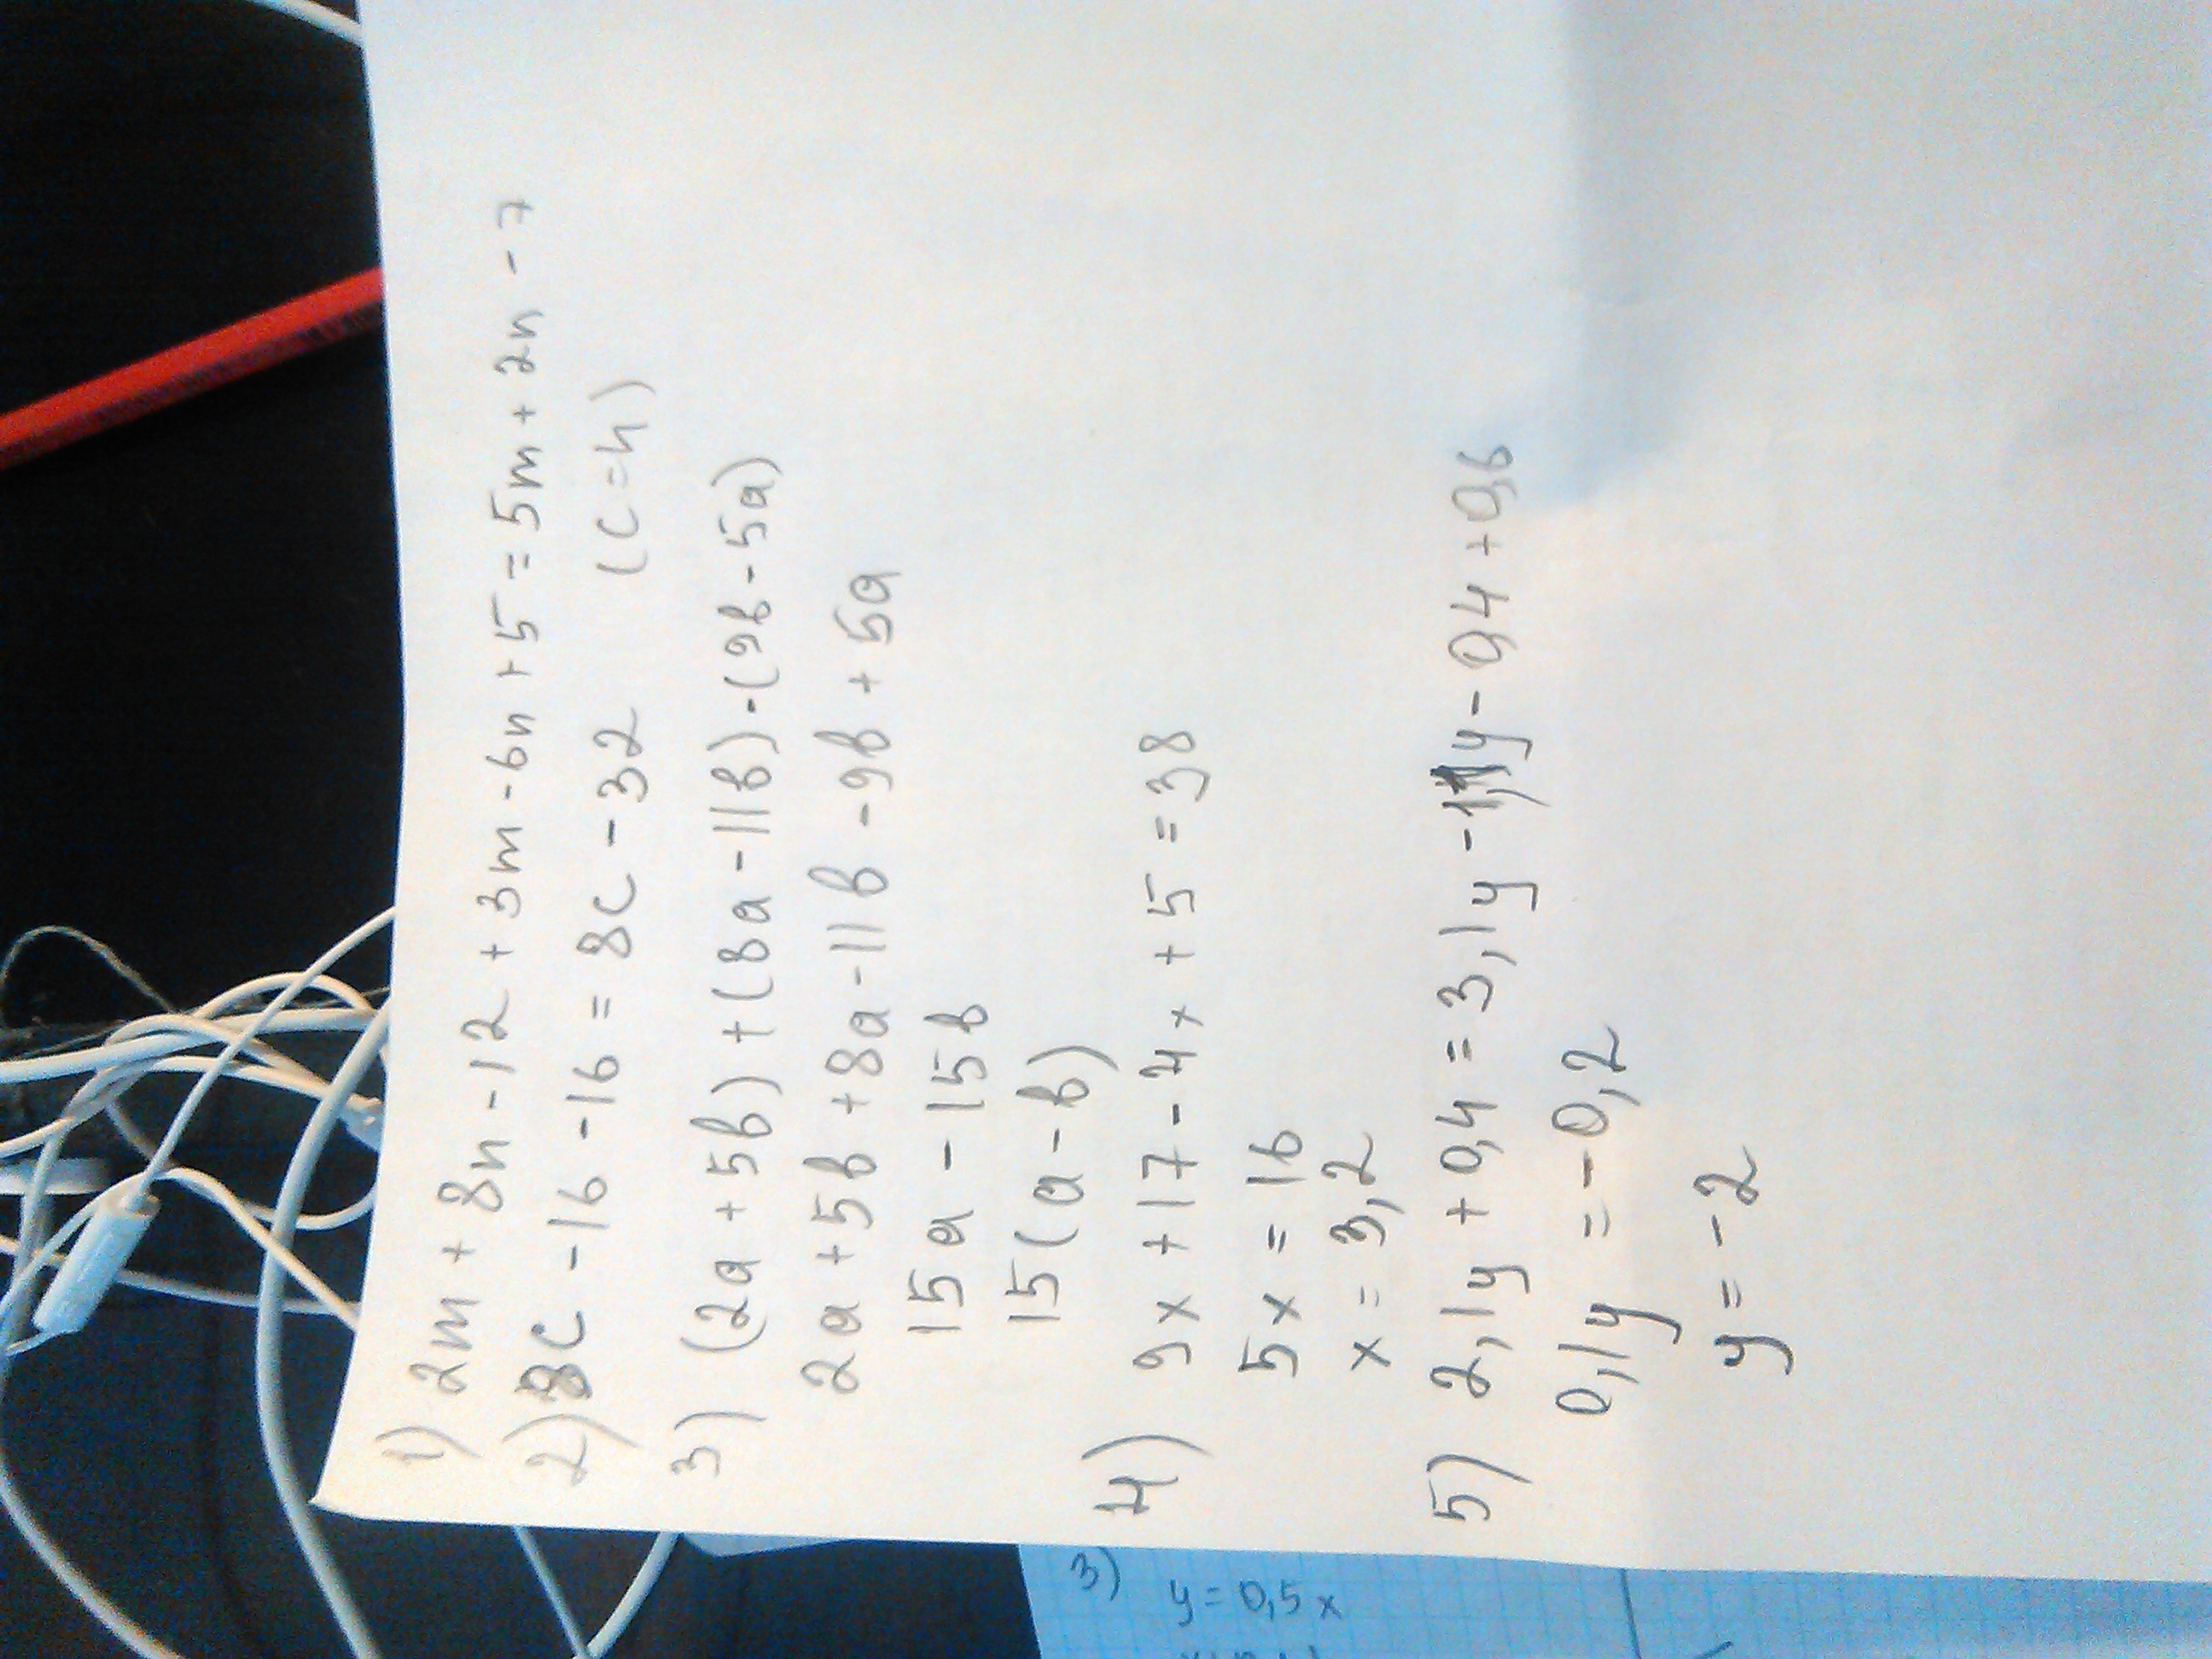 1) 2m + 8n - 12 + 3m - 6n + 5 = 5m + 2n - 7
2) 8c - 16 - 16 = 8c - 32 (c = n)
3) (2a + 5b) + (8a - 11b) - (9b - 5a)
2a + 5b + 8a - 11b - 9b + 5a
15a - 15b
15(a - b)
4) 9x + 17 - 4x + 5 = 38
5x = 16
x = 3,2
5) 2,1y + 0,4 = 3,1y - 1,1y - 0,4 + 0,6
0,1y = -0,2
y = -2
3) y = 0,5x